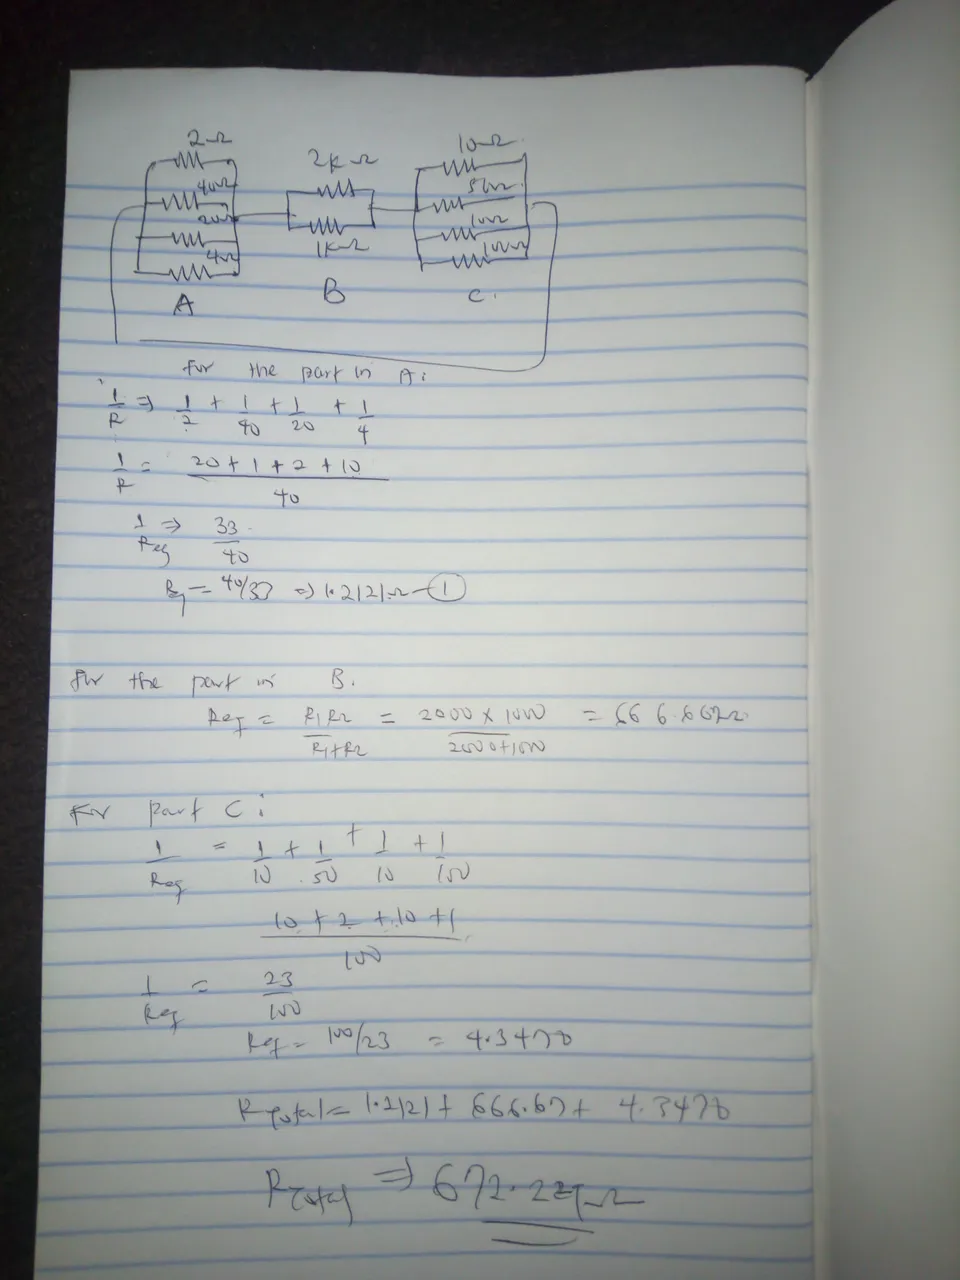 2Ω 2KΩ 10Ω
40Ω 50Ω
20Ω 10Ω
4Ω 1KΩ 100Ω
A B C.
For the part in A:
1/R ⇒ 1/2 + 1/40 + 1/20 + 1/4
1/R = 20 + 1 + 2 + 10 / 40
1/Req ⇒ 33/40
Rq = 40/33 ⇒ 1.2121Ω — 1
For the part in B.
Req = R1R2/R1+R2 = 2000 × 1000/2000+1000 = 666.667Ω
For part C:
1/Req = 1/10 + 1/50 + 1/10 + 1/100
10 + 2 + 10 + 1 / 100
1/Req = 23/100
Req = 100/23 = 4.3478
RTotal = 1.2121 + 666.67 + 4.3478
RTotal ⇒ 672.229Ω